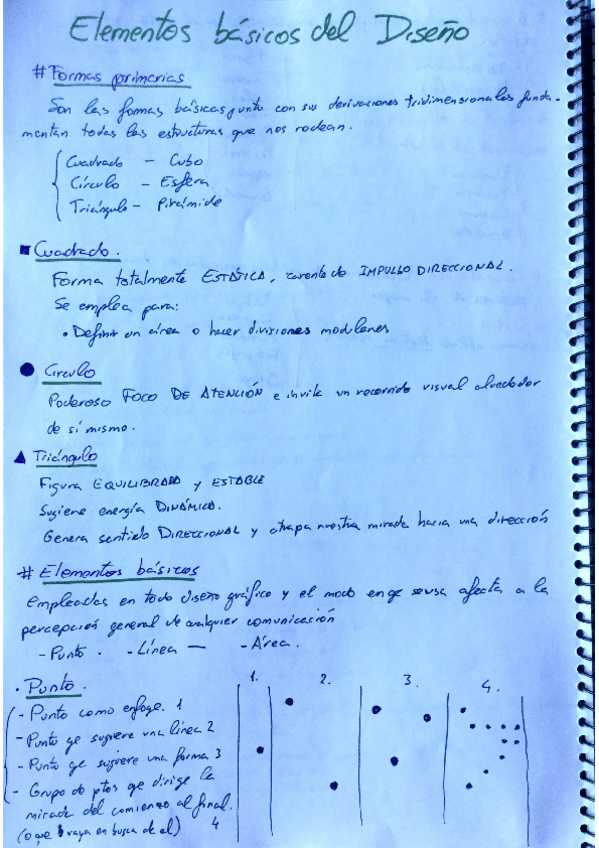 Elementos básicos del Diseño
# Formas primarias
Son las formas básicas, junto con sus derivaciones tridimensionales funda-
mentan todas las estructuras que nos rodean.
Cuadrado – Cubo
Círculo – Esfera
Triángulo – Pirámide
Cuadrado.
Forma totalmente ESTÁTICA, carente de IMPULSO DIRECCIONAL.
Se emplea para:
• Definir un área o hacer divisiones modulares
Círculo
Poderoso FOCO DE ATENCIÓN e invita un recorrido visual alrededor
de sí mismo.
Triángulo
Figura EQUILIBRADA y ESTABLE
Sugiere energía DINÁMICA.
Genera sentido DIRECCIONAL y atrapa nuestra mirada hacia una dirección
# Elementos básicos
Empleadas en todo diseño gráfico y el modo en qe se usa afecta a la
percepción general de cualquier comunicación
- Punto . - Línea — - Área .
• Punto. 1. 2. 3. 4.
- Punto como enfoqe. 1
- Punto qe sugiere una línea 2
- Punto qe sugiere una forma 3
- Grupo de ptos qe dirige la
mirada del comienzo al final.
(o que vaya en busca de el) 4